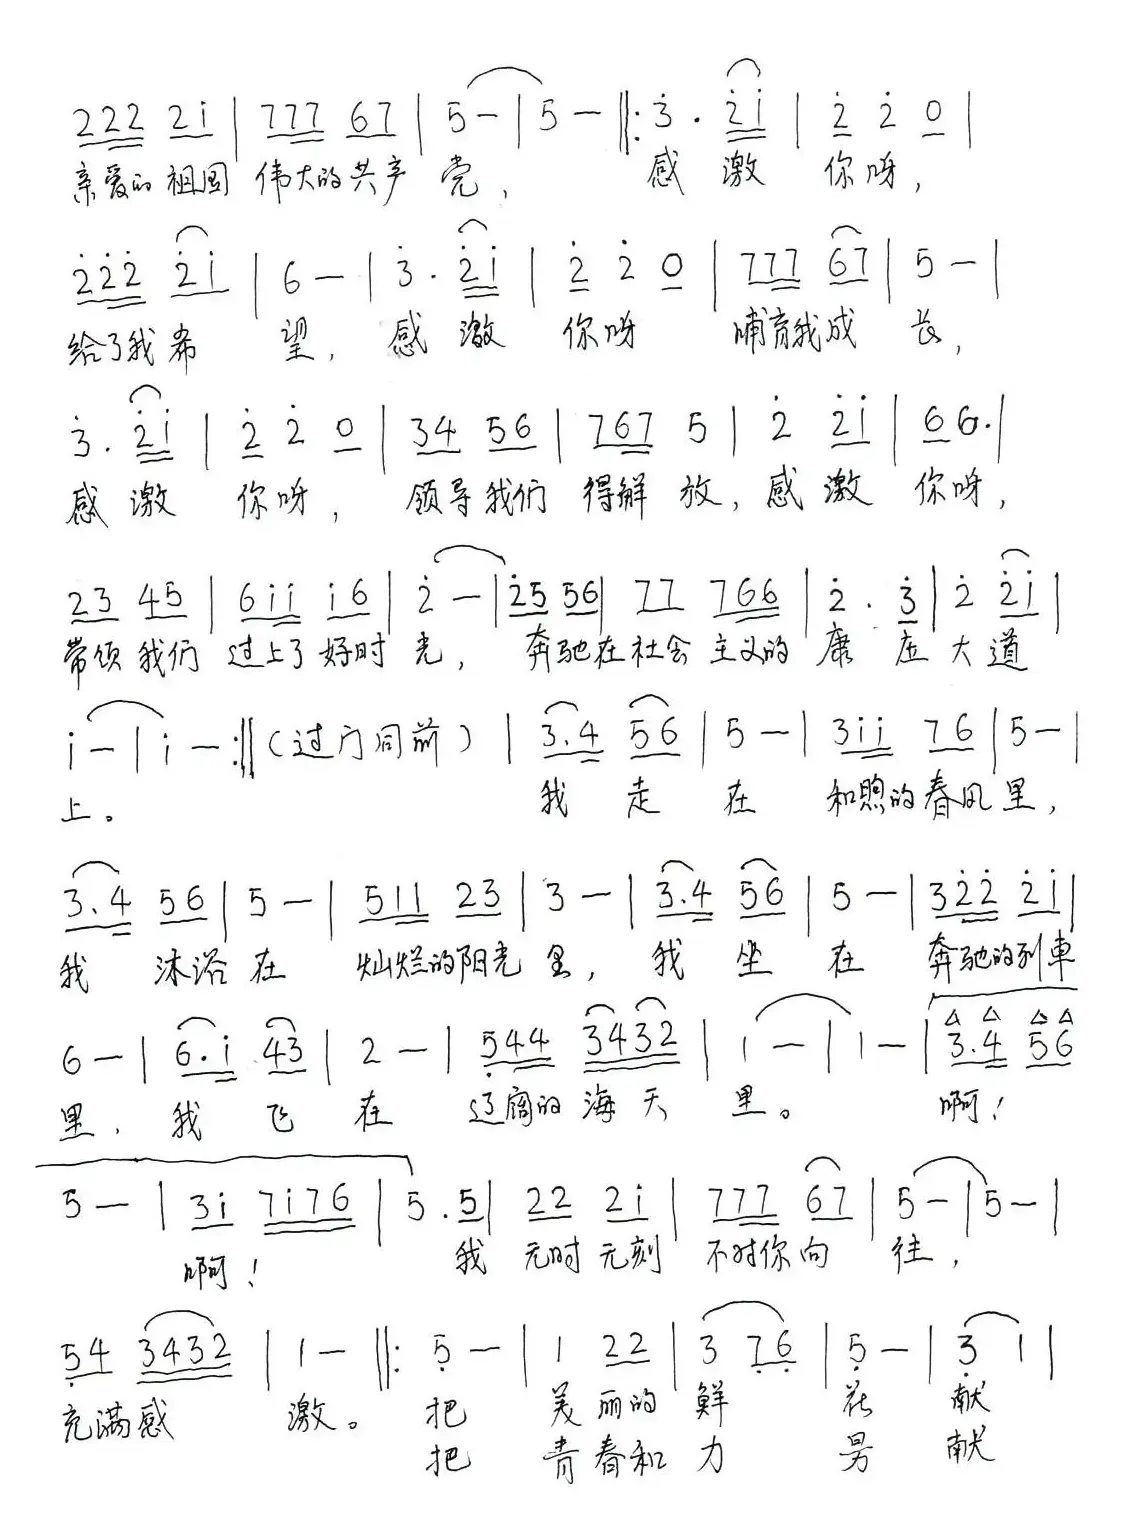 2̲2̲̲2̲̲ 2̲i̲ | 7̲7̲̲7̲̲ 6̲7̲ | 5 — | 5 — ‖: 3̇ . 2̲̲̇i̲̲ | 2̲̇ 2̇ 0̲ |
亲爱的祖国 伟大的共产 党， 感 激 你呀，
2̲̇2̲̲̇2̲̲̇ 2̲̇i̲ | 6 — | 3̇ . 2̲̲̇i̲̲ | 2̲̇ 2̇ 0̲ | 7̲7̲̲7̲̲ 6̲7̲ | 5 — |
给了我希 望， 感 激 你呀 哺育我成 长，
3̇ . 2̲̲̇i̲̲ | 2̲̇ 2̇ 0̲ | 3̲4̲ 5̲6̲ | 7̲6̲̲7̲̲ 5 | 2̇ 2̲̇i̲ | 6̲ 6. |
感 激 你呀， 领导我们 得解 放，感 激 你呀，
2̲3̲ 4̲5̲ | 6̲i̲̲i̲̲ i̲6̲ | 2̇ — | 2̲̇5̲ 5̲6̲ | 7̲7̲ 7̲6̲̲6̲̲ | 2̇ . 3̲̇ | 2̇ 2̲̇i̲ |
带领我们 过上了好时 光， 奔驰在社会 主义的 康 庄 大 道
i — | i — :‖ (过门同前) | 3̲.4̲̲ 5̲6̲ | 5 — | 3̲i̲̲i̲̲ 7̲6̲ | 5 — |
上。 我 走 在 和煦的春风里，
3̲.4̲̲ 5̲6̲ | 5 — | 5̲1̲̲1̲̲ 2̲3̲ | 3 — | 3̲.4̲̲ 5̲6̲ | 5 — | 3̲2̲̲̇2̲̲̇ 2̲̇i̲ |
我 沐浴 在 灿烂的阳光 里， 我 坐 在 奔驰的列車
6 — | 6̲.i̲̲ 4̲3̲ | 2 — | 5̲̣4̲̲4̲̲ 3̲̲4̲̲3̲̲2̲̲ | 1 — | 1 — | 3̲.4̲̲ 5̲6̲
里， 我 飞 在 辽阔的 海 天 里。 啊！
5 — | 3̲i̲ 7̲̲i̲̲7̲̲6̲̲ | 5 . 5̲ | 2̲2̲ 2̲i̲ | 7̲7̲̲7̲̲ 6̲7̲ | 5 — | 5 — |
啊！ 我 无时 无刻 不对你向 往，
5̲̣4̲ 3̲̲4̲̲3̲̲2̲̲ | 1 — ‖: 5̣ — | 1 2̲2̲ | 3 7̲̣6̲̣ | 5̣ — | 3̣ 1 |
充满感 激。 把 美 丽的 鲜 花 献
把 青 春和 力 献